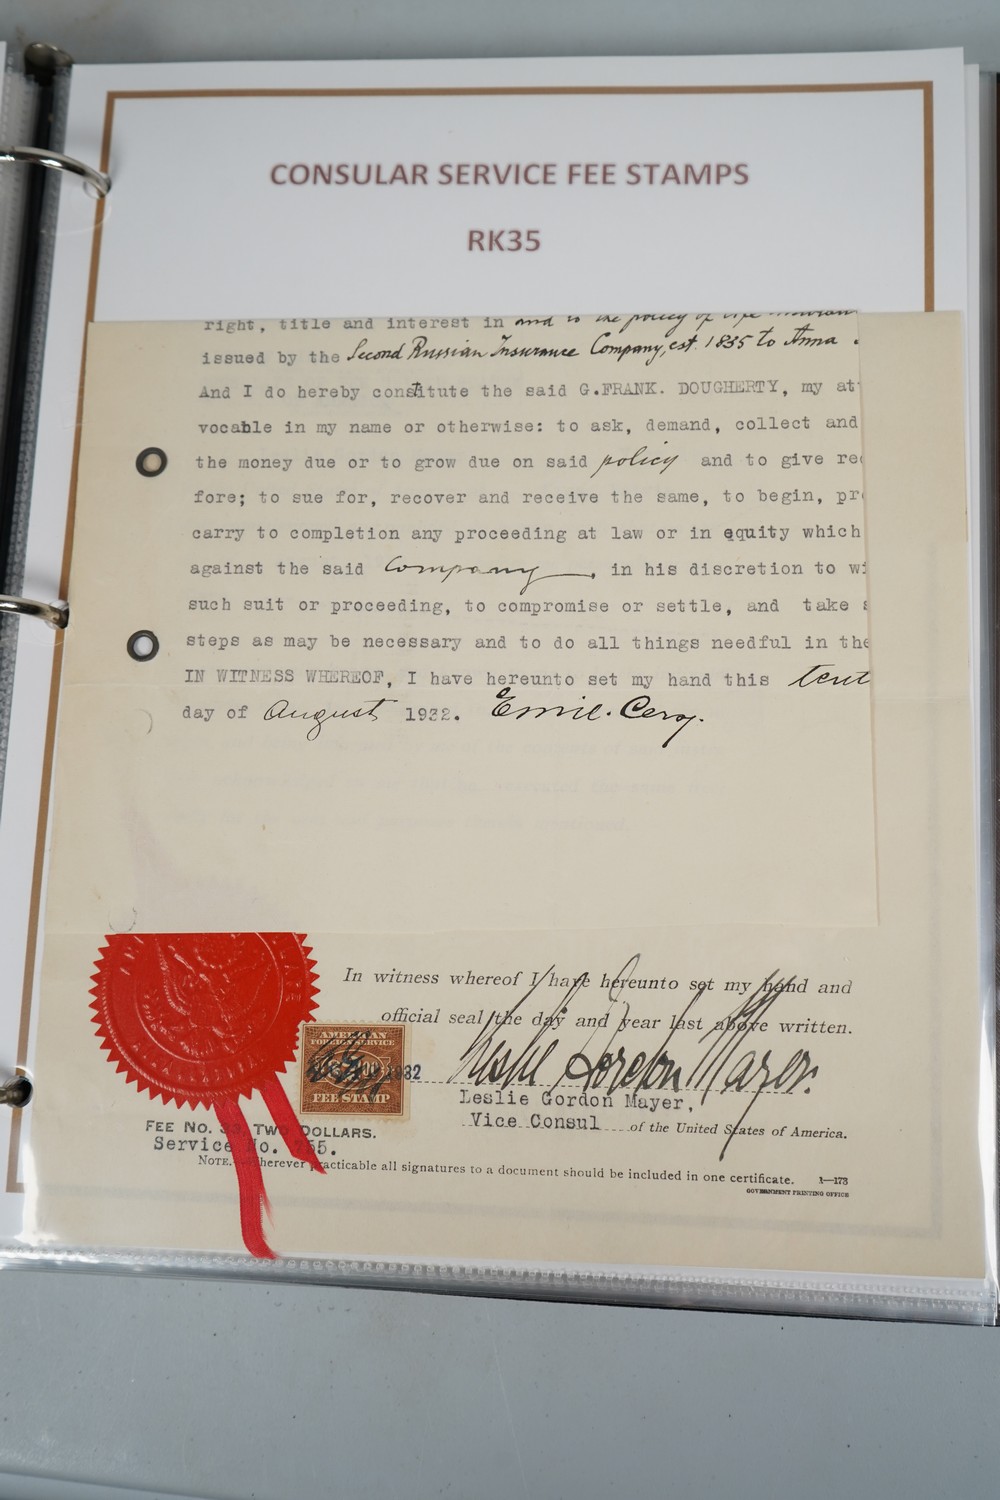 CONSULAR SERVICE FEE STAMPS
RK35
right, title and interest in and to the policy of life
issued by the Second Russian Insurance Company, est. 1835 to Anna
And I do hereby constitute the said G.FRANK. DOUGHERTY, my at
vocable in my name or otherwise: to ask, demand, collect and
the money due or to grow due on said policy and to give re
fore; to sue for, recover and receive the same, to begin, pr
carry to completion any proceeding at law or in equity which
against the said Company, in his discretion to wi
such suit or proceeding, to compromise or settle, and take s
steps as may be necessary and to do all things needful in the
IN WITNESS WHEREOF, I have hereunto set my hand this tent
day of August 1932. Emil. Cerq.
In witness whereof I have hereunto set my hand and
official seal the day and year last above written.
AMERICAN
FOREIGN SERVICE
FEE STAMP
1932
Leslie Gordon Mayer
Leslie Gordon Mayer,
Vice Consul of the United States of America.
FEE NO. 33, TWO DOLLARS.
Service No. 755.
NOTE.—Wherever practicable all signatures to a document should be included in one certificate. 1—173
GOVERNMENT PRINTING OFFICE